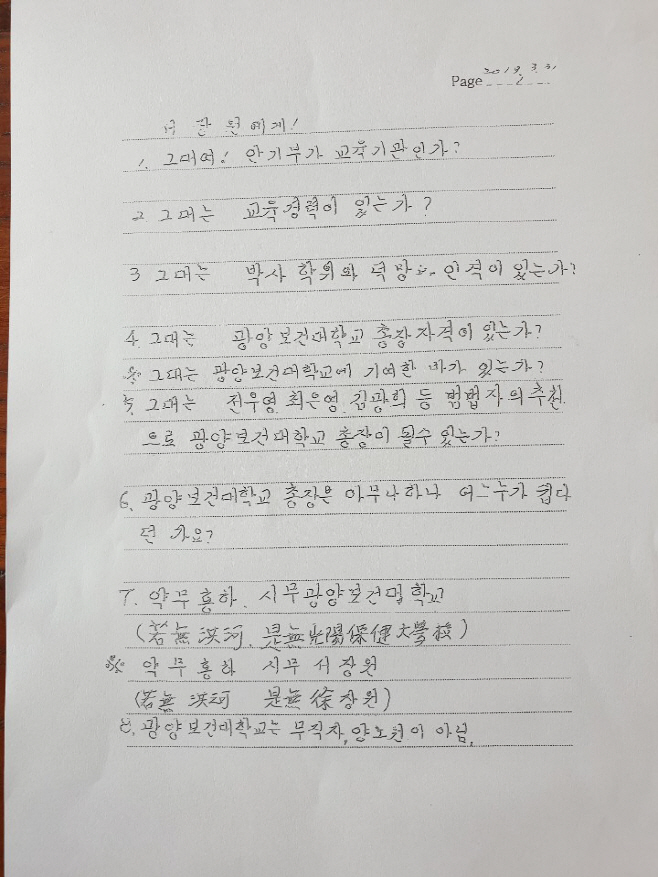 2019. 3. 31
Page 2
서 장 원에게!
1. 그대여! 안기부가 교육기관인가?
2 그대는 교육경력이 있는가?
3 그대는 박사 학위와 덕망 인격이 있는가?
4. 그대는 광양보건대학교 총장자격이 있는가?
※ 그대는 광양보건대학교에 기여한 바가 있는가?
5. 그대는 전우영, 최은영, 김광희 등 범법자의 추천
으로 광양보건대학교 총장이 될수 있는가?
6. 광양보건대학교 총장은 아무나하나 어느누가 쉽다
던 가요?
7. 약무홍하. 시무광양보건대학교
(若無洪河. 是無光陽保健大學校)
※ 약무홍하 시무서장원
(若無洪河 是無徐장원)
8. 광양보건대학교는 무직자, 양노원이 아님.